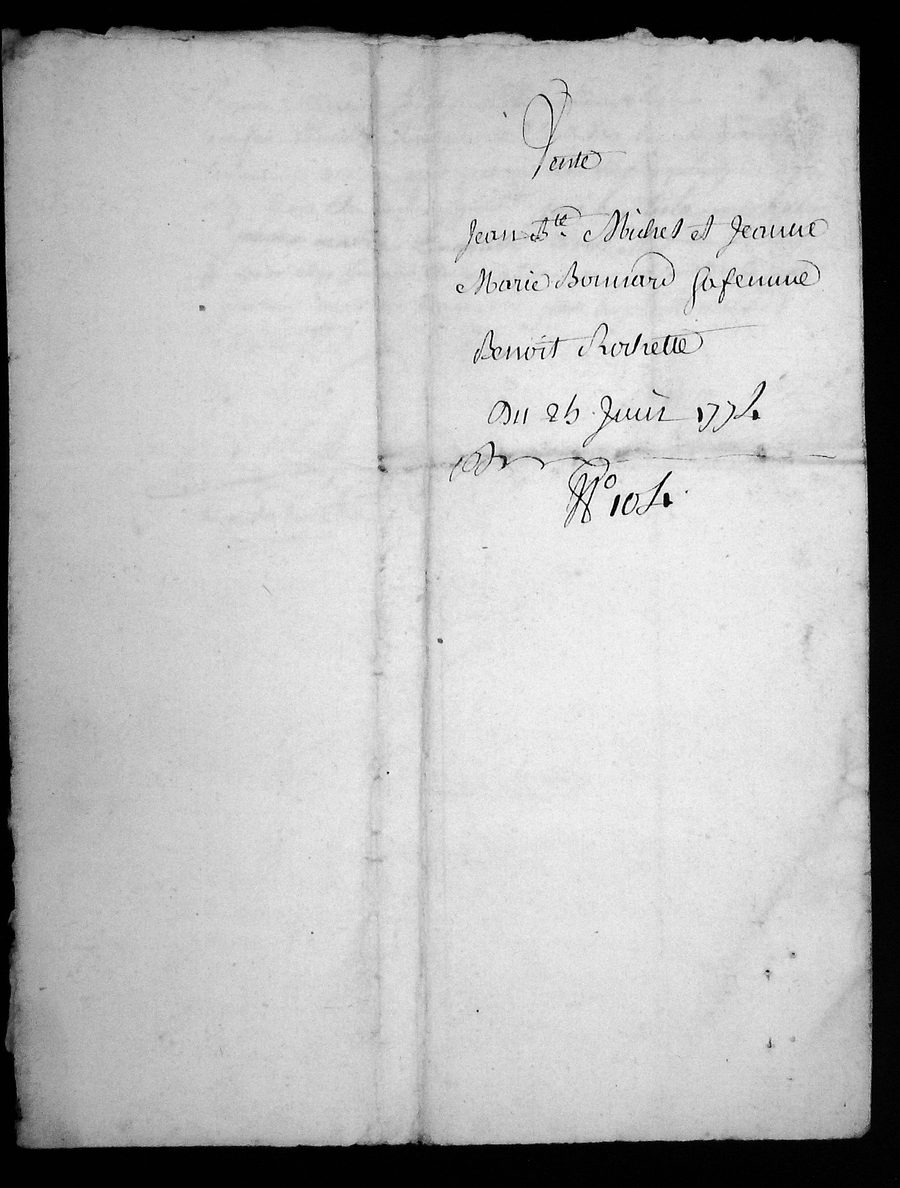 Vente
Jean Bte. Michel et Jeanne
Marie Bonnard sa femme
Benoit Rochette
Du 25 Juin 1774.
No 104.